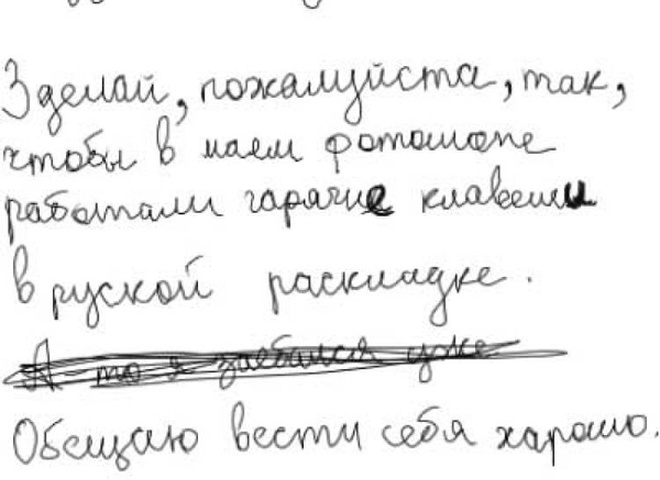 Зделай, пожалуйста, так,
чтобы в маем фотошопе
работали гарячие клавеши
в руской раскладке.
А то я заебался уже
Обещаю вести себя харошо.